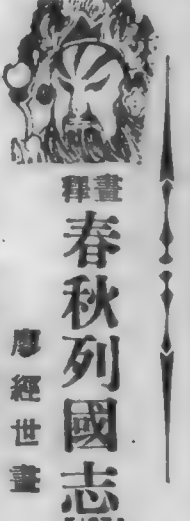 釋畫
春秋列國志
廖經世畫